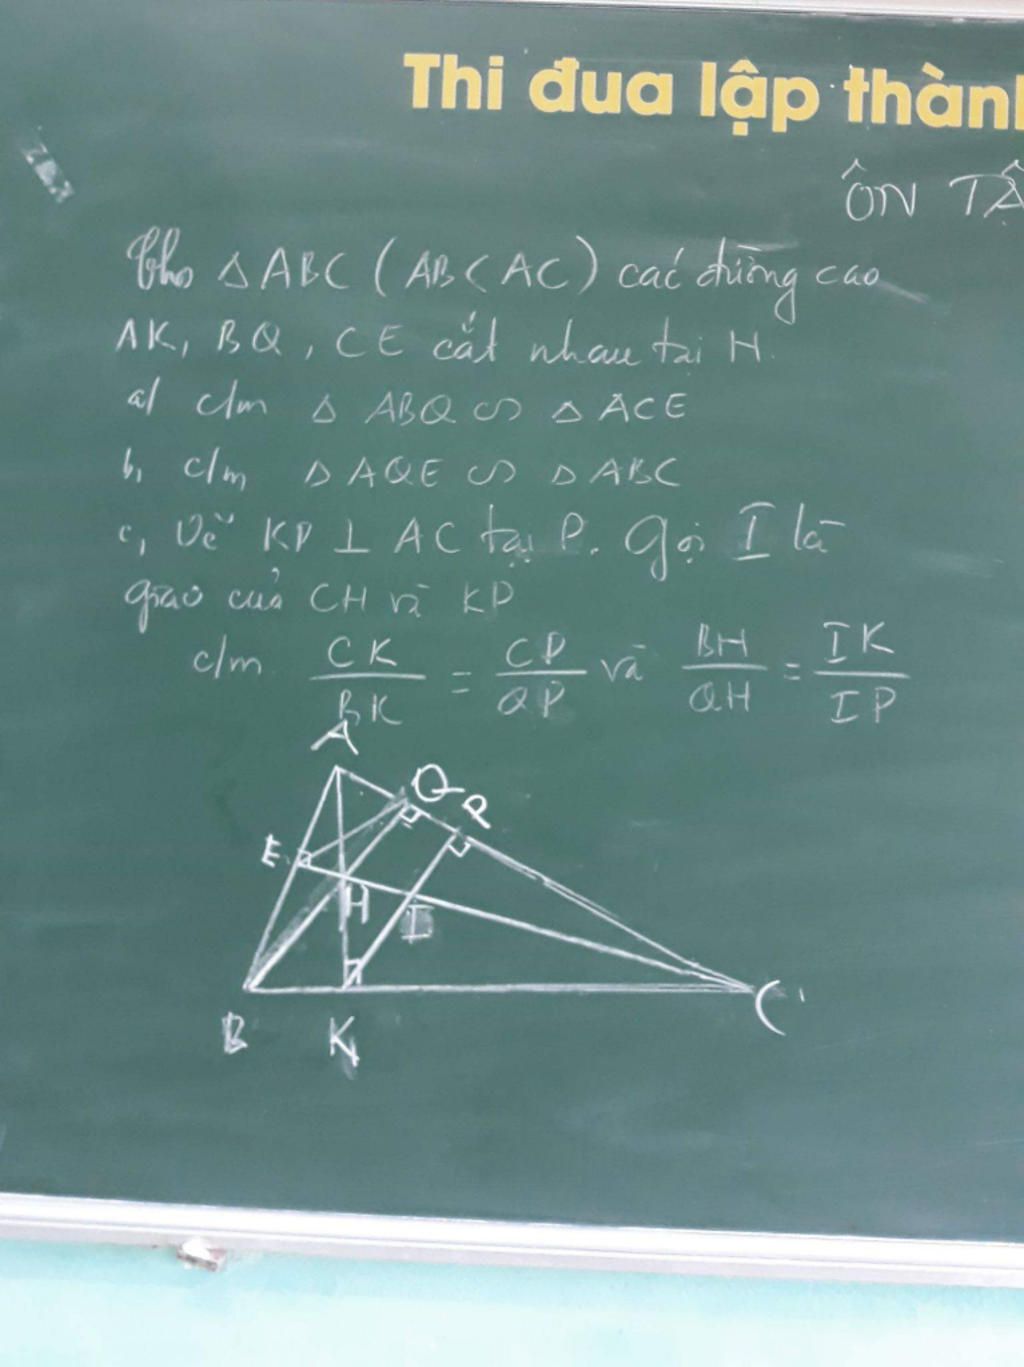 Thi đua lập thành
ÔN TẬ
Cho △ABC (AB<AC) các đường cao
AK, BQ, CE cắt nhau tại H.
a/ c/m △ ABQ ∽ △ ACE
b, c/m △ AQE ∽ △ ABC
c, Vẽ KP ⊥ AC tại P. Gọi I là
giao của CH và KP
c/m CK/BK = CP/QP và BH/QH = IK/IP
A
Q P
E
H I
B K C